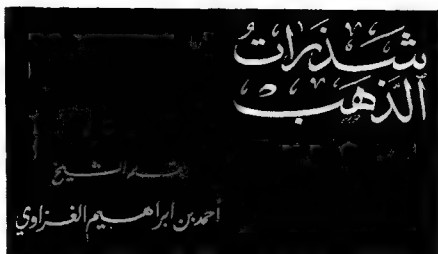 شَذَرَاتُ
الذَّهَبِ
بقلم الشيخ
أحمد بن ابراهيم الغزاوي